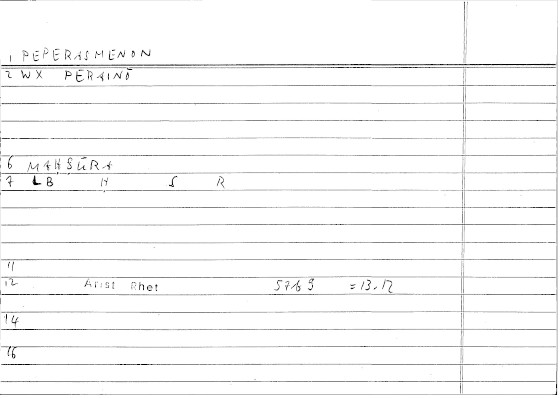 1 PEPERASMENON
2 WX PERAINŌ
6 MAḤṢŪRA
7 LB Ḥ Ṣ R
11
12 Arist Rhet = 13.12
14
16